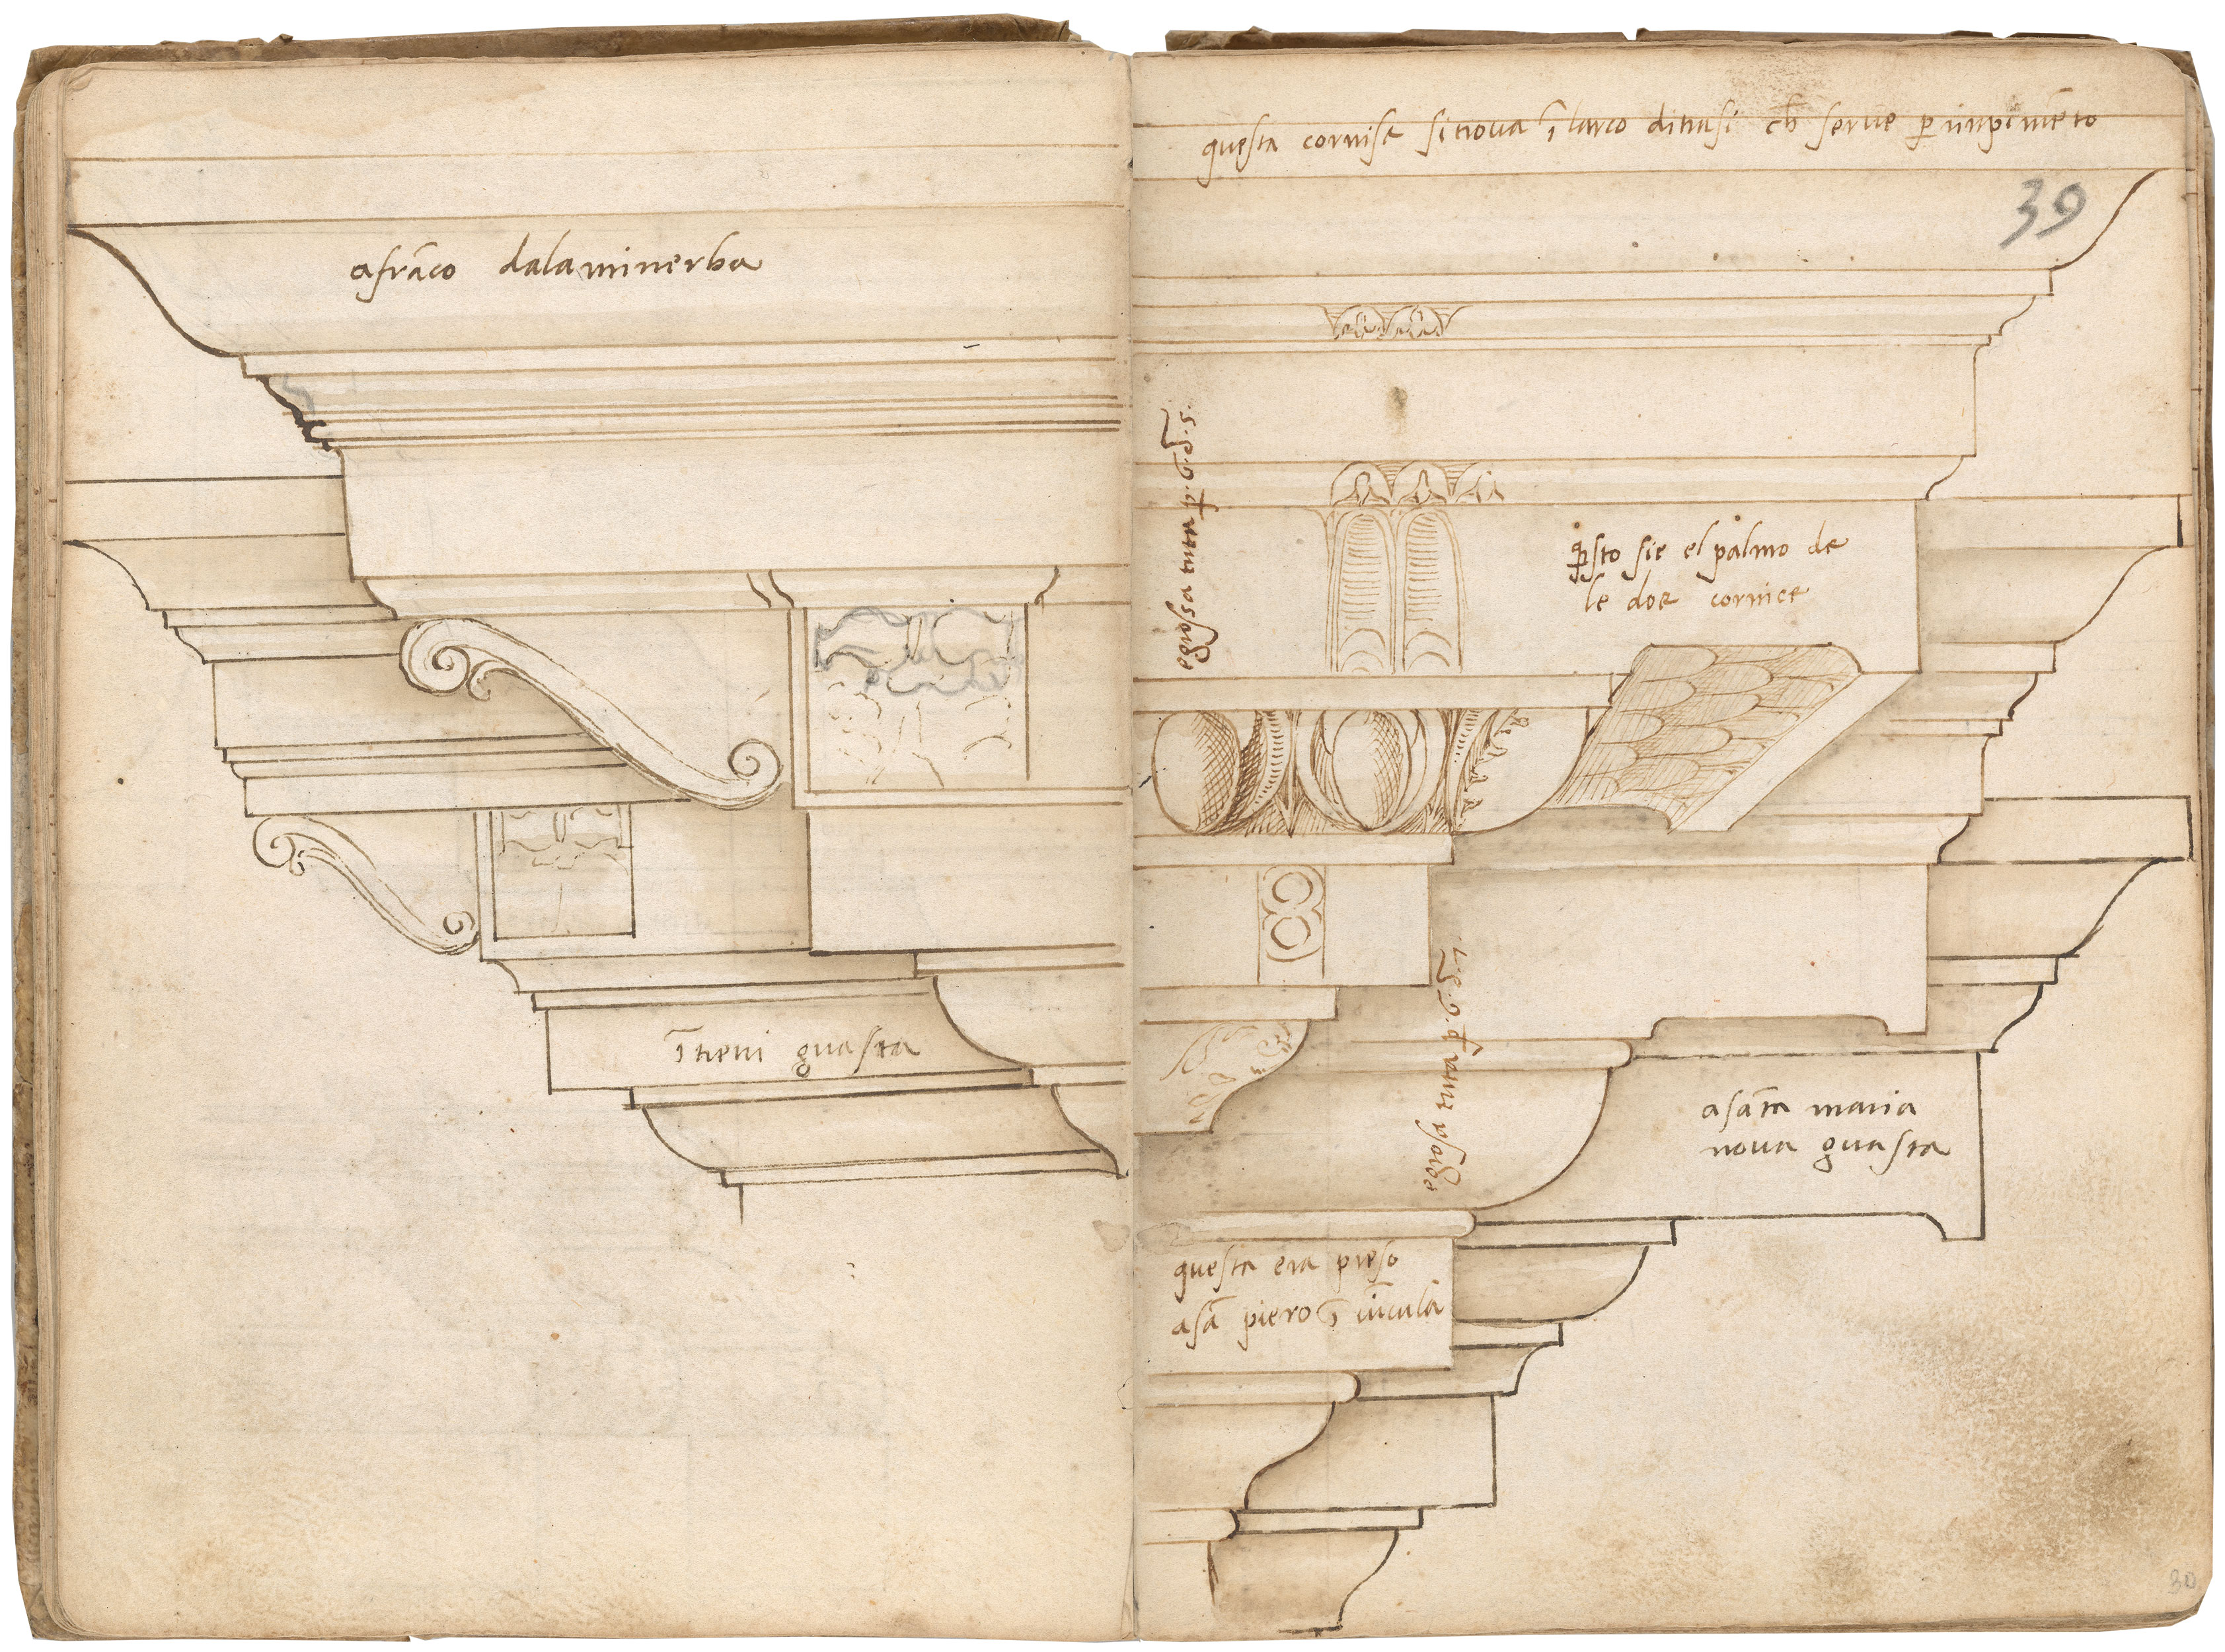 afrāco dalaminerba
ī treui guasta
questa cornise si trova ī larco ditrasi ch̄ serve p̱ inpimēto
39
egrossa tuta p̱. 6. d. 5.
q̱sto sie el palmo de
le doe cornice
egrosa tuta p̱. 6. d. 7.
asāta maria
nova guasta
questa era preso
asā piero ī vīcula
30